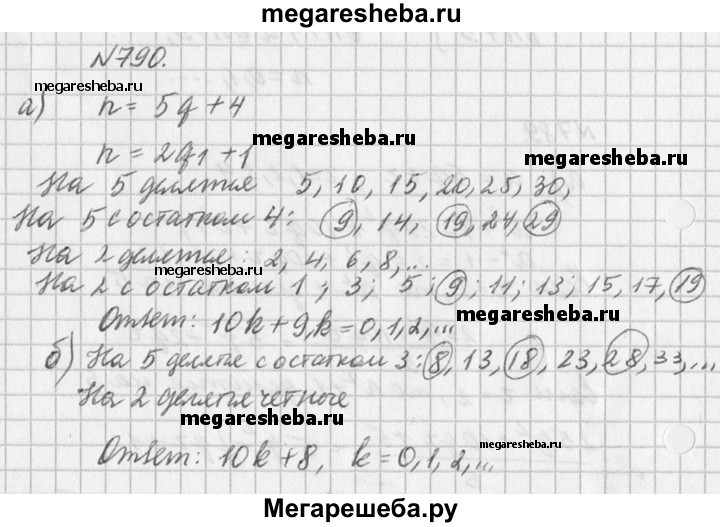 megaresheba.ru
N790.
megaresheba.ru
а) n = 5q + 4
megaresheba.ru
n = 2q1 + 1
megaresheba.ru
На 5 делятся 5, 10, 15, 20, 25, 30,
На 5 с остатком 4: 9, 14, 19, 24, 29
На 2 делятся: 2, 4, 6, 8, ...
megaresheba.ru
На 2 с остатком 1; 3; 5; 9; 11; 13; 15, 17, 19
Ответ: 10k + 9, k = 0, 1, 2, ...
megaresheba.ru
б) На 5 делятся с остатком 3: 8, 13, 18, 23, 28, 33, ...
На 2 делятся четные
megaresheba.ru
megaresheba.ru
Ответ: 10k + 8, k = 0, 1, 2, ...
Мегарешеба.ру